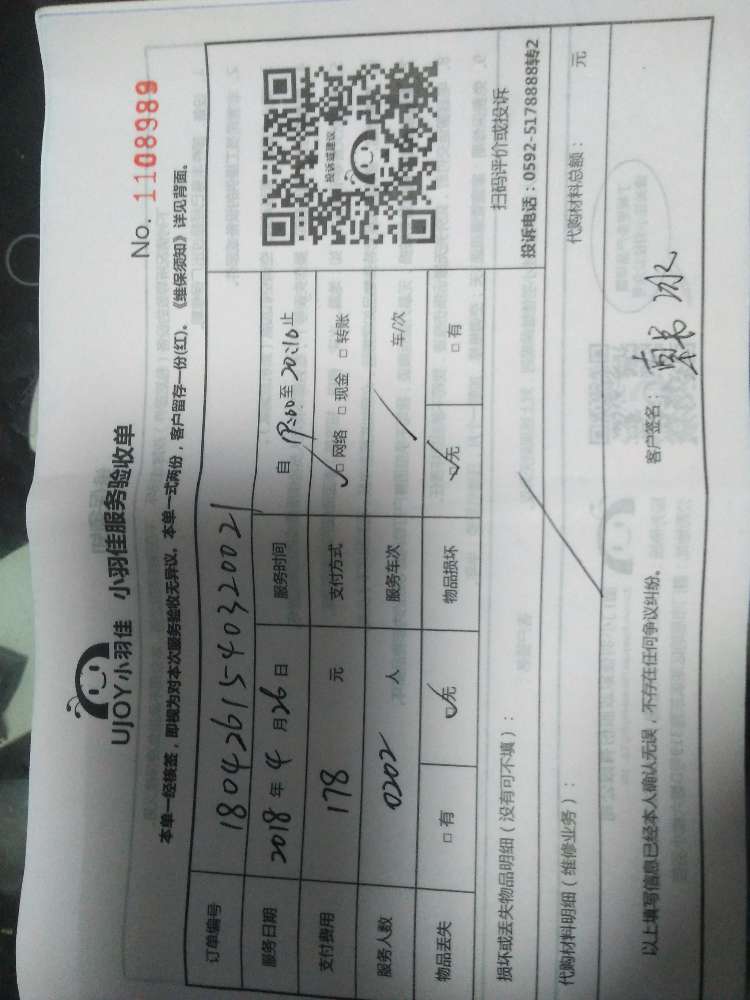 UJOY小羽佳 小羽佳服务验收单
No. 1108989
本单一经核签，即视为对本次服务验收无异议。本单一式两份，客户留存一份(红)。《维保须知》详见背面。
订单编号 1804261540320021
服务日期 2018年4月26日 服务时间 自 至20:10止
支付费用 178 元 支付方式 □网络 □现金 □转账
服务人数 0202 人 服务车次 / 车/次
物品丢失 □有 □无 物品损坏 □无 □有
投诉或建议
扫码评价或投诉
投诉电话：0592-5178888转2
损坏或丢失物品明细（没有可不填）：
代购材料明细（维修业务）： 代购材料总额： 元
以上填写信息已经本人确认无误，不存在任何争议纠纷。 客户签名：